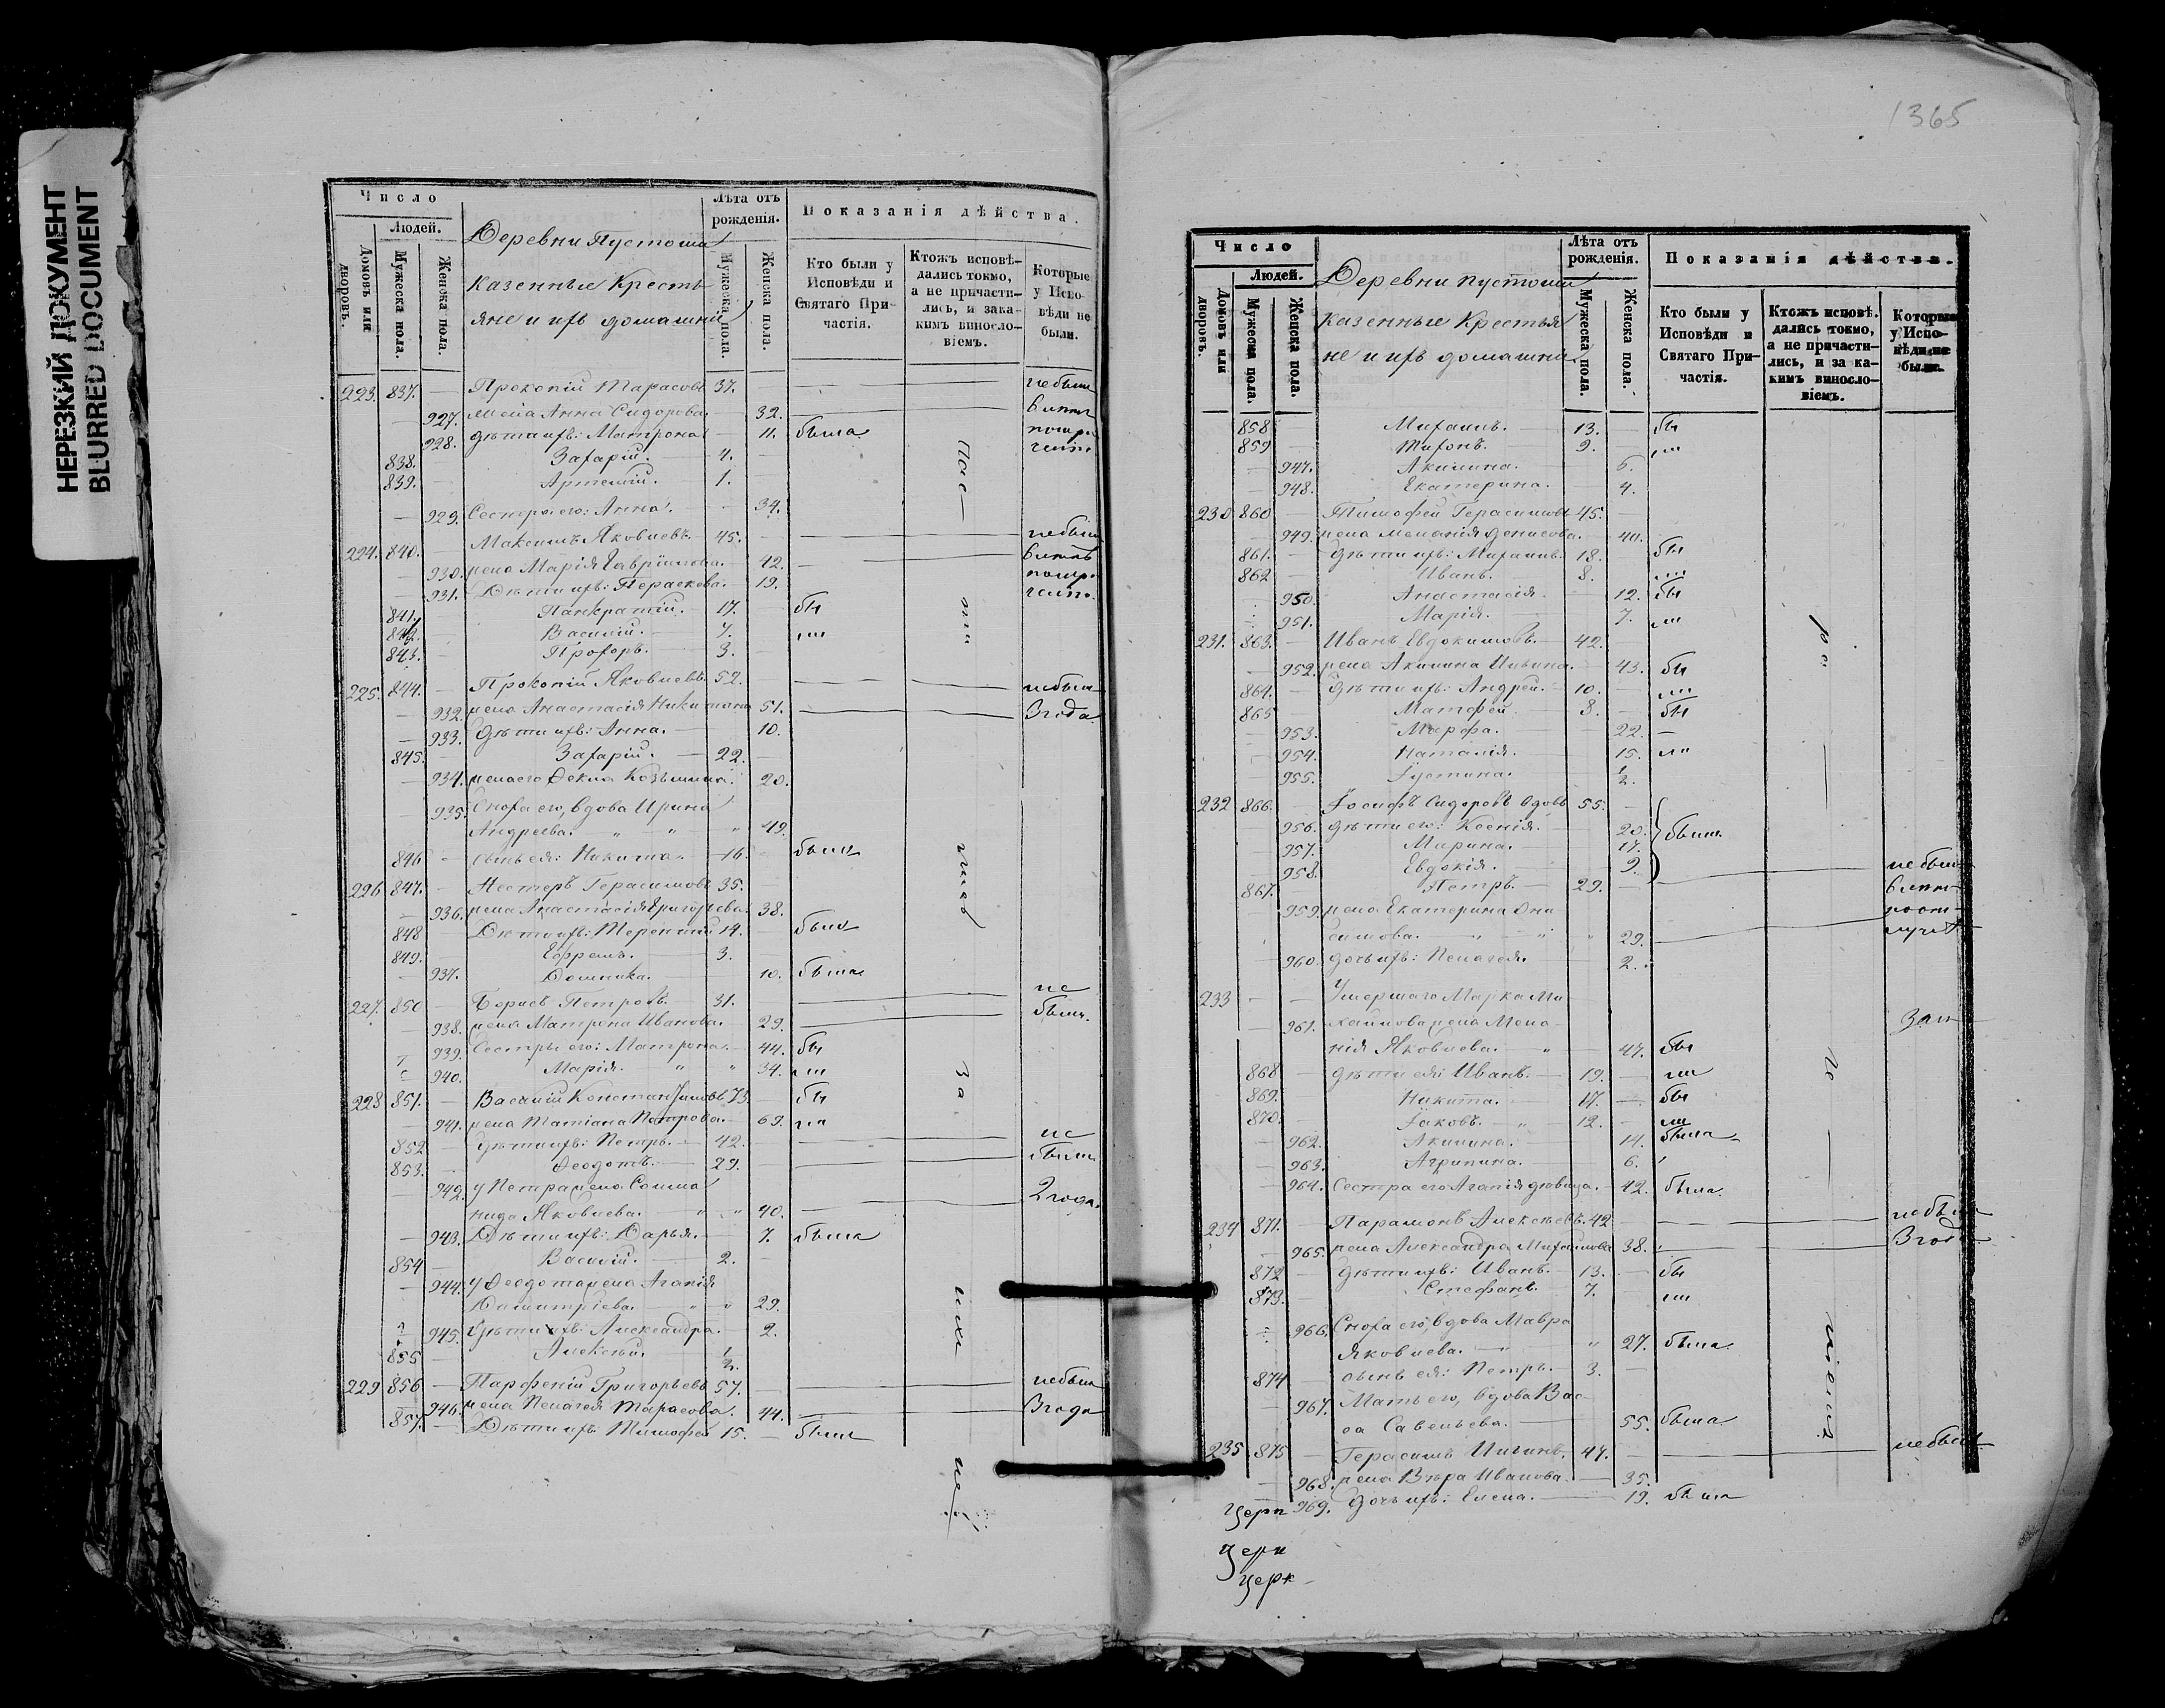 НЕРЕЗКИЙ ДОКУМЕНТ
BLURRED DOCUMENT
Число
Людей.
Домовъ или дворовъ.
Мужеска пола.
Женска пола.
Деревни Пустоши
казенные Кресть
яне и ихъ домашніе
Лѣта отъ рожденія.
Мужеска пола.
Женска пола.
Показанія дѣйства.
Кто были у Исповѣди и Святаго Причастія.
Ктожъ исповѣдались токмо, а не причастились, и за какимъ винословіемъ.
Которые у Исповѣди не были.
223. 837. — Прокопій Тарасовъ 37. — небыли
— 927. жена Анна Сидорова. — 32.
— 928. дѣти ихъ: Матрона — 11. была
838. — Захарій. — 4. —
839. — Артемій. — 1.
— 929. Сестра его: Анна. — 34.
224. 840. — Максимъ Яковлевъ. 45. — небыли
— 930. жена Марія Гавріилова. — 42.
— 931. Дѣти ихъ: Параскева. — 19.
841. — Панкратій. — 17. бы
842. — Василій. — 7. ли
843. — Прохоръ. — 3.
225. 844. — Прокопій Яковлевъ. 52. — небыли
— 932. жена Анастасія Никитина 51. 3 года
— 933. Дѣти ихъ: Анна. — 10.
845. — Захарій. — 22.
— 934. жена его Фекла Козьмина. 20.
— 935. Сноха его, вдова Ирина
Андреева. " " " 49.
846 — сынъ ея: Никита. — 16. — былъ
226 847. — Нестеръ Герасимовъ 35. —
— 936. жена Анастасія Григорьева. 38.
848 Дѣти ихъ: Терентій 14. — былъ
849. — Ефремъ. — 3.
— 937. Домника. — 10. была
227. 850 — Борисъ Петровъ. — 31. — не
— 938. жена Матрона Иванова. — 29. были.
939. Сестры его: Матрона. — 44. бы
940. Марія. " " 34. ли
228 851. — Василій Константиновъ 73. — бы
— 941. жена Татіана Петрова. — 69. ли
852 — дѣти ихъ: Петръ. — 42. — не
853. — Феодотъ. — 29. — были
— 942. у Петра жена Солома
нида Яковлева. " " 40. 2 года.
— 943. Дѣти ихъ: Дарья. — 7. была
854 — Василій. — 2. —
— 944. у Феодота жена Агапія
Димитріева. " " 29.
945. Дѣти ихъ: Александра. — 2.
855 — Алексѣй. — 1/2.
229 856 — Парфеній Григорьевъ 57. — небыли
— 946. жена Пелагея Тарасова. 44. 3 года
857. — Дѣти ихъ Тимофей 15. — былъ
1365
Число
Людей.
Домовъ или дворовъ.
Мужеска пола.
Женска пола.
Деревни пустоши
казенные Крестья
не и ихъ домашніе
Лѣта отъ рожденія.
Мужеска пола.
Женска пола.
Показанія дѣйства.
Кто были у Исповѣди и Святаго Причастія.
Ктожъ исповѣдались токмо, а не причастились, и за какимъ винословіемъ.
Которые у Исповѣди не были.
858 — Михаилъ. — 13. — бы
859 — Тихонъ. — 9. — ли
— 947. Акилина. — 6.
— 948. Екатерина. — 4.
230 860 — Тимофей Герасимовъ 45. —
— 949. жена Меланія Денисова. — 40.
861. — дѣти ихъ: Михаилъ. 18. — бы
862 — Иванъ. — 8. — ли
950. Анастасія. — 12. бы
951. Марія. — 7. ли
231. 863. — Иванъ Евдокимовъ. 42. —
— 952. жена Акилина — 43. бы
864. — дѣти ихъ: Андрей. 10. — ли
865 — Матфей. — 8. — бы
— 953. Марфа. — 22. —
— 954. Наталія. — 15. ли
— 955. Іустина. — 1/2.
232 866. — Іосифъ Сидоровъ вдовъ 55. —
— 956. дѣти его: Ксенія. — 20. были
— 957. Марина. — 17.
— 958. Евдокія. — 9. небыли
867. — Петръ. — 29. —
— 959. жена Екатерина Они
симова. " " 29.
— 960. дочь ихъ: Пелагея. — 2.
233 — — Умершаго Марка Ми
— 961. хайлова жена Мела
нія Яковлева. " 47. бы
868 — дѣти ея: Иванъ. — 19. — ли
869. — Никита. — 17. — бы
870. — Іаковъ. " 12. — ли
— 962. Акилина. — 14. была
— 963. Агрипина. — 6.
— 964. Сестра его Агапія дѣвица. — 42. была
234 871. — Парамонъ Алексѣевъ. 42 — небыли
— 965. жена Александра Михайлова 38. 3 года
872 — дѣти ихъ: Иванъ. — 13. — бы
873. — Стефанъ. — 7. — ли
966. Сноха его, вдова Мавра
Яковлева. — " 27. была.
874 — сынъ ея: Петръ. 3. —
— 967. Мать его, вдова Вас
са Савельева. — 55. была
235 875 — Герасимъ 47. — небылъ
— 968. жена Вѣра Иванова. — 35.
969. дочь ихъ: Елена. — 19. была
церк
церк